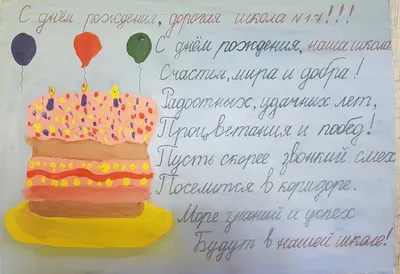 С днём рождения, дорогая школа №17!!!
С днём рождения, наша школа
Счастья, мира и добра!
Радостных, удачных лет,
Процветания и побед!
Пусть скорее звонкий смех
Поселится в коридоре.
Море знаний и успех
Будут в нашей школе!